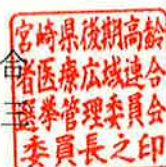 宮崎県後期高齢
者医療広域連合
選挙管理委員会
委員長之印